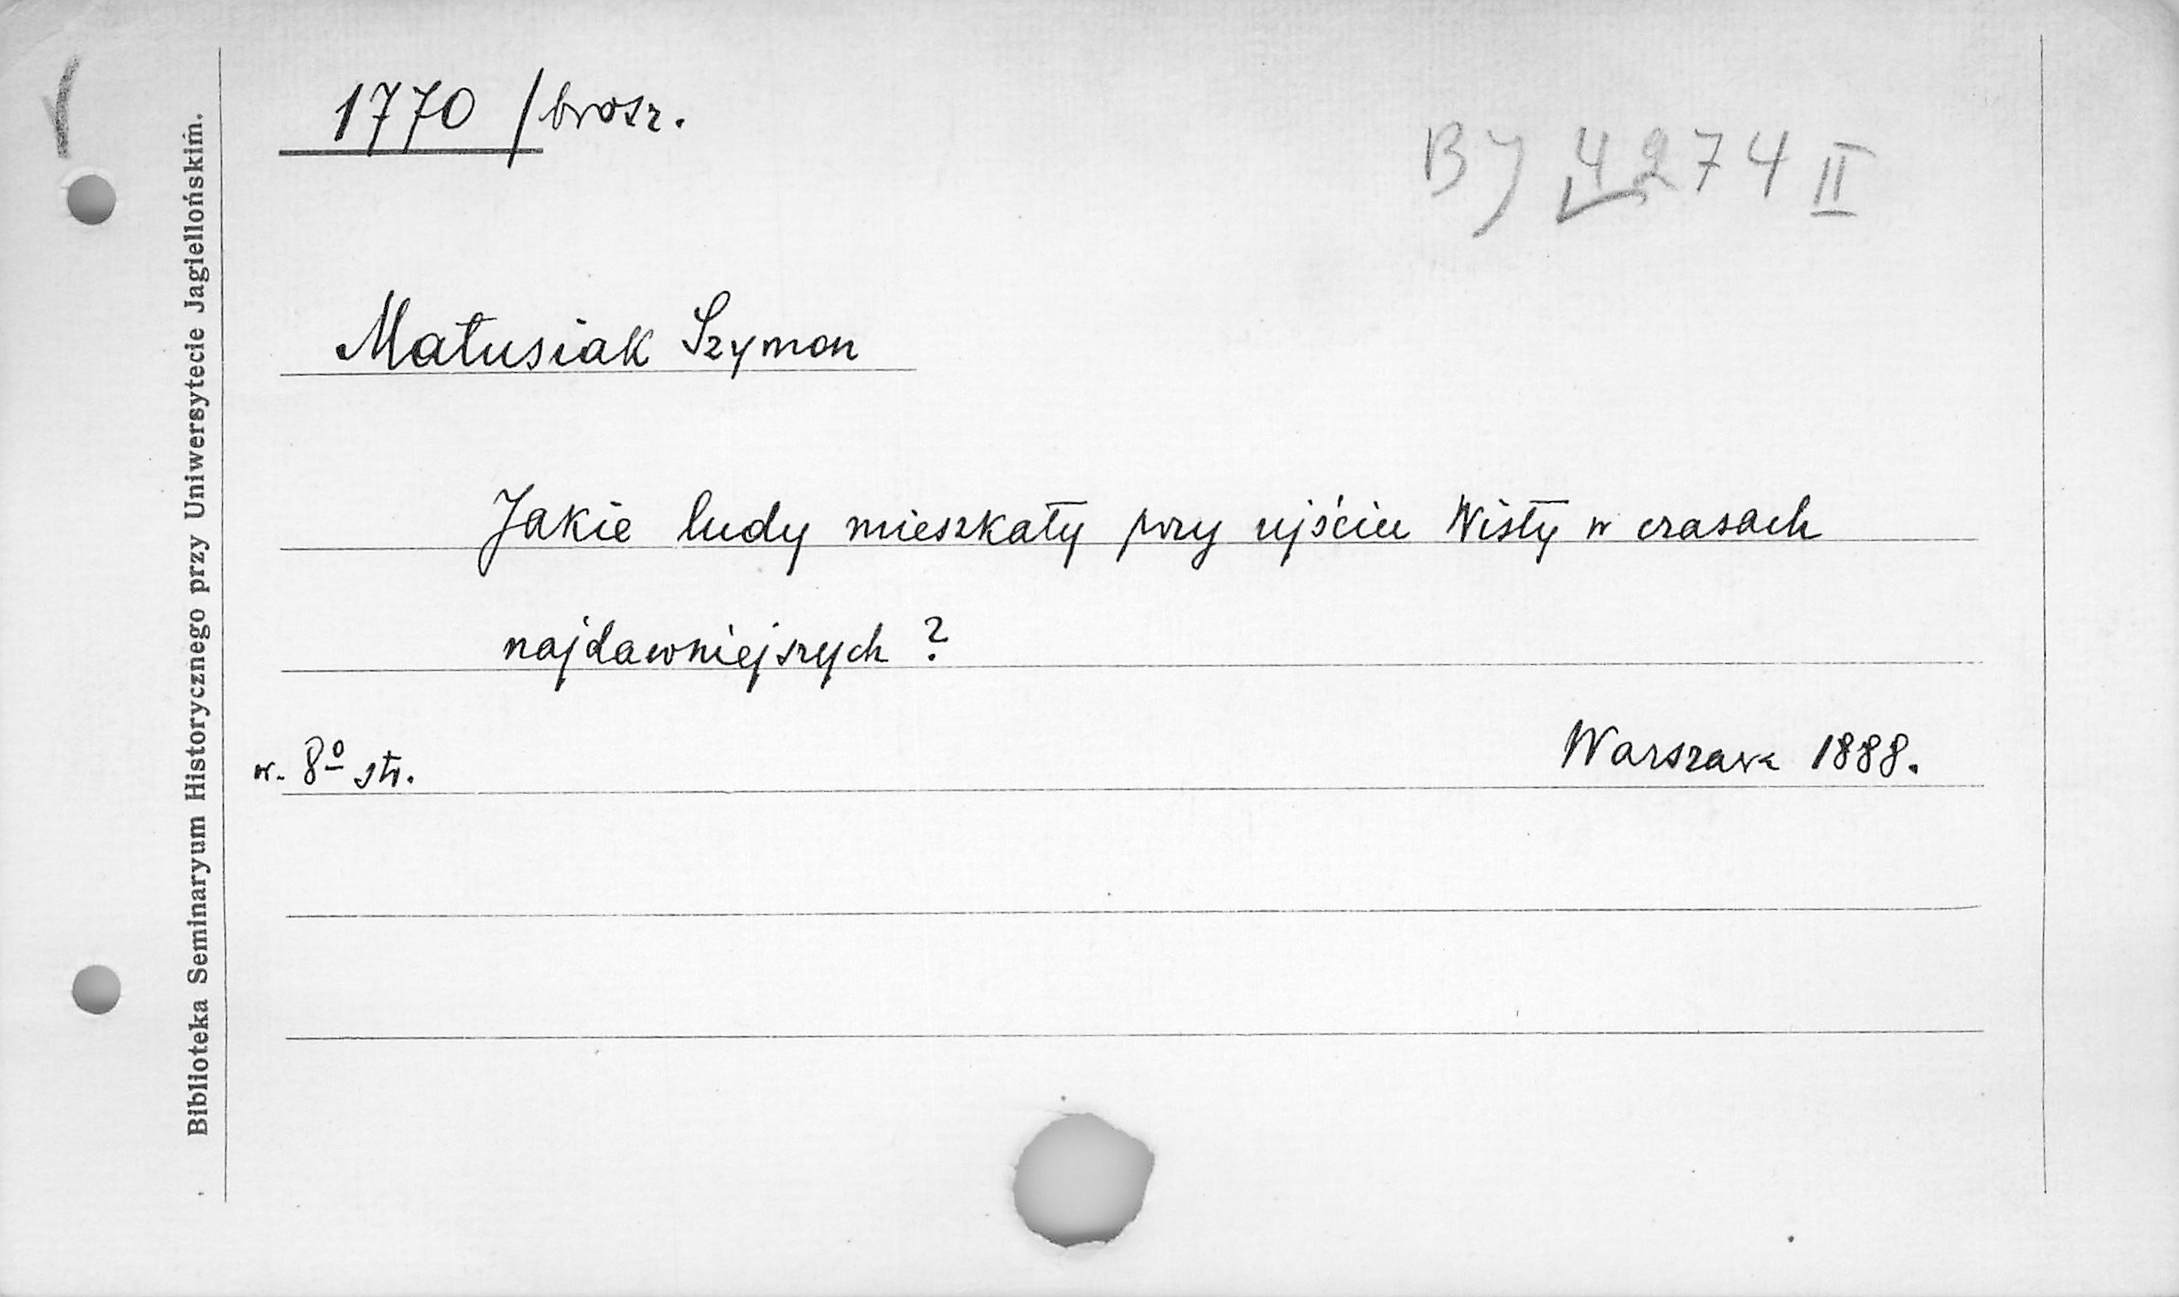 1770 /brosz.
BJ 4274 II
Matusiak Szymon
Jakie ludy mieszkały przy ujściu Wisły w czasach
najdawniejszych ?
w. 8º str.
Warszawa 1888.
Biblioteka Seminaryum Historycznego przy Uniwersytecie Jagiellońskim.